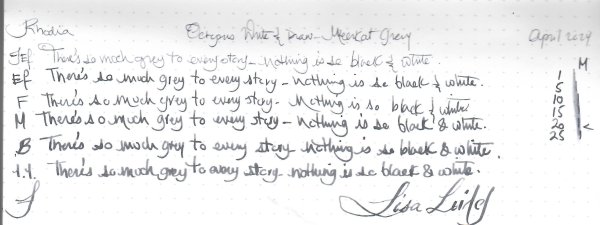 Rhodia Octopus Write & Draw - Meerkat Grey April 2024
EF There's so much grey to every story - nothing is so black & white. M
EF There's so much grey to every story - nothing is so black & white. 1
5
F There's so much grey to every story - Nothing is so black & white 10
15
M There's so much grey to every story - nothing is so black & white. 20 <
25
B There's so much grey to every story nothing is so black & white.
1.1. There's so much grey to every story nothing is so black & white.
Lisa